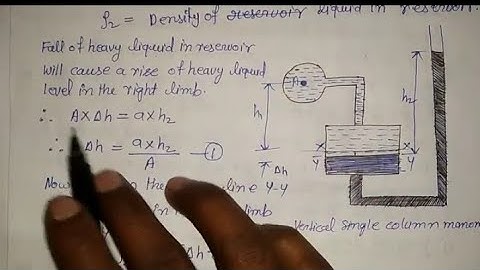 ρ₂ = Density of liquid in reservoir.
Fall of heavy liquid in reservoir
will cause a rise of heavy liquid
level in the right limb.
∴ A×Δh = a×h₂
∴ Δh = a×h₂ / A —①
Now the line Y-Y
in limb
Δh
A
h₁
h₂
X X
Y Y
Δh
Vertical single column